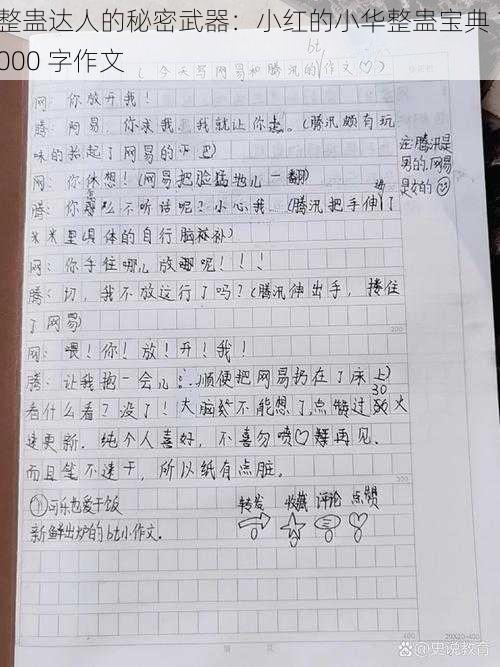 整蛊达人的秘密武器：小红的小华整蛊宝典
000 字作文
bt
(今天写网易和腾讯的作文♡)
网：你放开我！
腾：网易，你求我，我就让你走。(腾讯颇有玩
味的抬起了网易的下巴)
网：你休想！(网易把脸猛地儿一翻)
腾：你怎么不听话呢？小心我…(腾讯把手伸
里具体的自行脑补)
网：你手往哪儿放呢！！！
腾：切，我不放这行了吗？(腾讯伸出手，搂住
了网易)
网：喂！你！放！开！我！
腾：让我抱一会儿…(顺便把网易扔在了床上)
看什么看？没了！大脑 不能想了，点赞过30火
速更新。纯个人喜好，不喜勿喷♡ 再见、
而且笔不速干，所以纸有点脏。
也爱干饭
新鲜出炉的bt小作文.
转发 收藏 评论 点赞
注：腾讯是
男的，网易
是女的
200
300
400
20X20=400
第 页
@史说教育